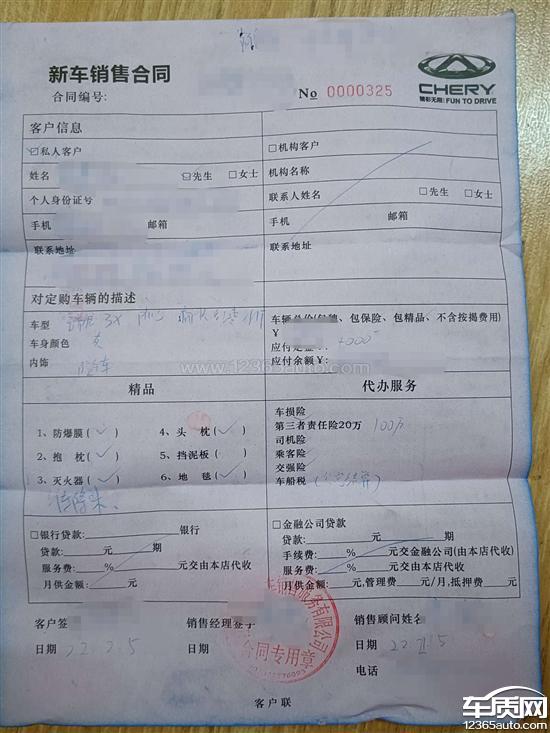 新车销售合同
合同编号:
No 0000325
CHERY
FUN TO DRIVE
客户信息
☑私人客户 □机构客户
姓名 ☑先生 □女士 机构名称
个人身份证号 联系人姓名 □先生 □女士
手机 邮箱 手机 邮箱
联系地址 联系地址
对定购车辆的描述
车型 3X
车辆总价(包税、包保险、包精品、不含按揭费用)
车身颜色 ¥
内饰
应付余额¥:
www.12365auto.com
精品 代办服务
1、防爆膜(✓) 4、头 枕(✓)
2、抱 枕(✓) 5、挡泥板( )
3、灭火器(✓) 6、地 毯(✓)
车损险
第三者责任险20万 100万
司机险
乘客险
交强险
车船税
□银行贷款: 银行
贷款: 元 期
服务费: % 元交由本店代收
月供金额: 元
□金融公司贷款
贷款: 元 期
手续费: % 元交金融公司(由本店代收)
服务费: % 元交由本店代收
月供金额: 元,管理费 元/月,抵押费 元
客户签 销售经理签字 销售顾问姓名
日期 22.2.5 日期 日期 22.2.5
电话
服务有限公司
合同专用章
客户联
车质网
12365auto.com